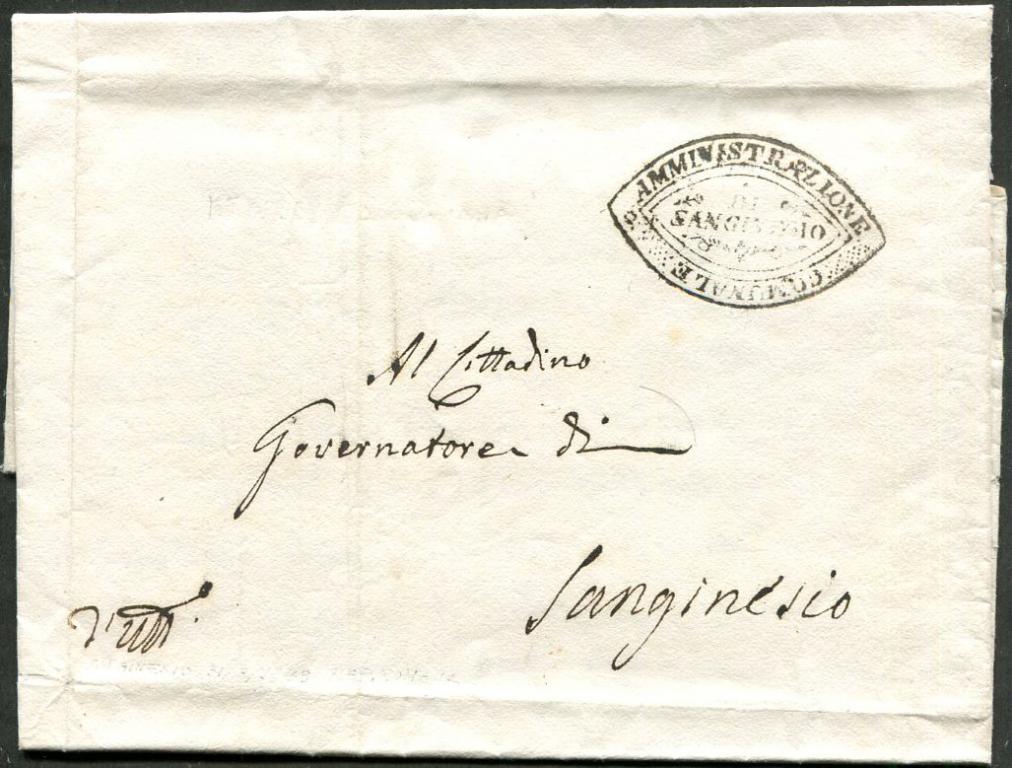 AMMINISTRAZIONE
DI
SANGINESIO
COMUNALE
Al Cittadino
Governatore di
Sanginesio